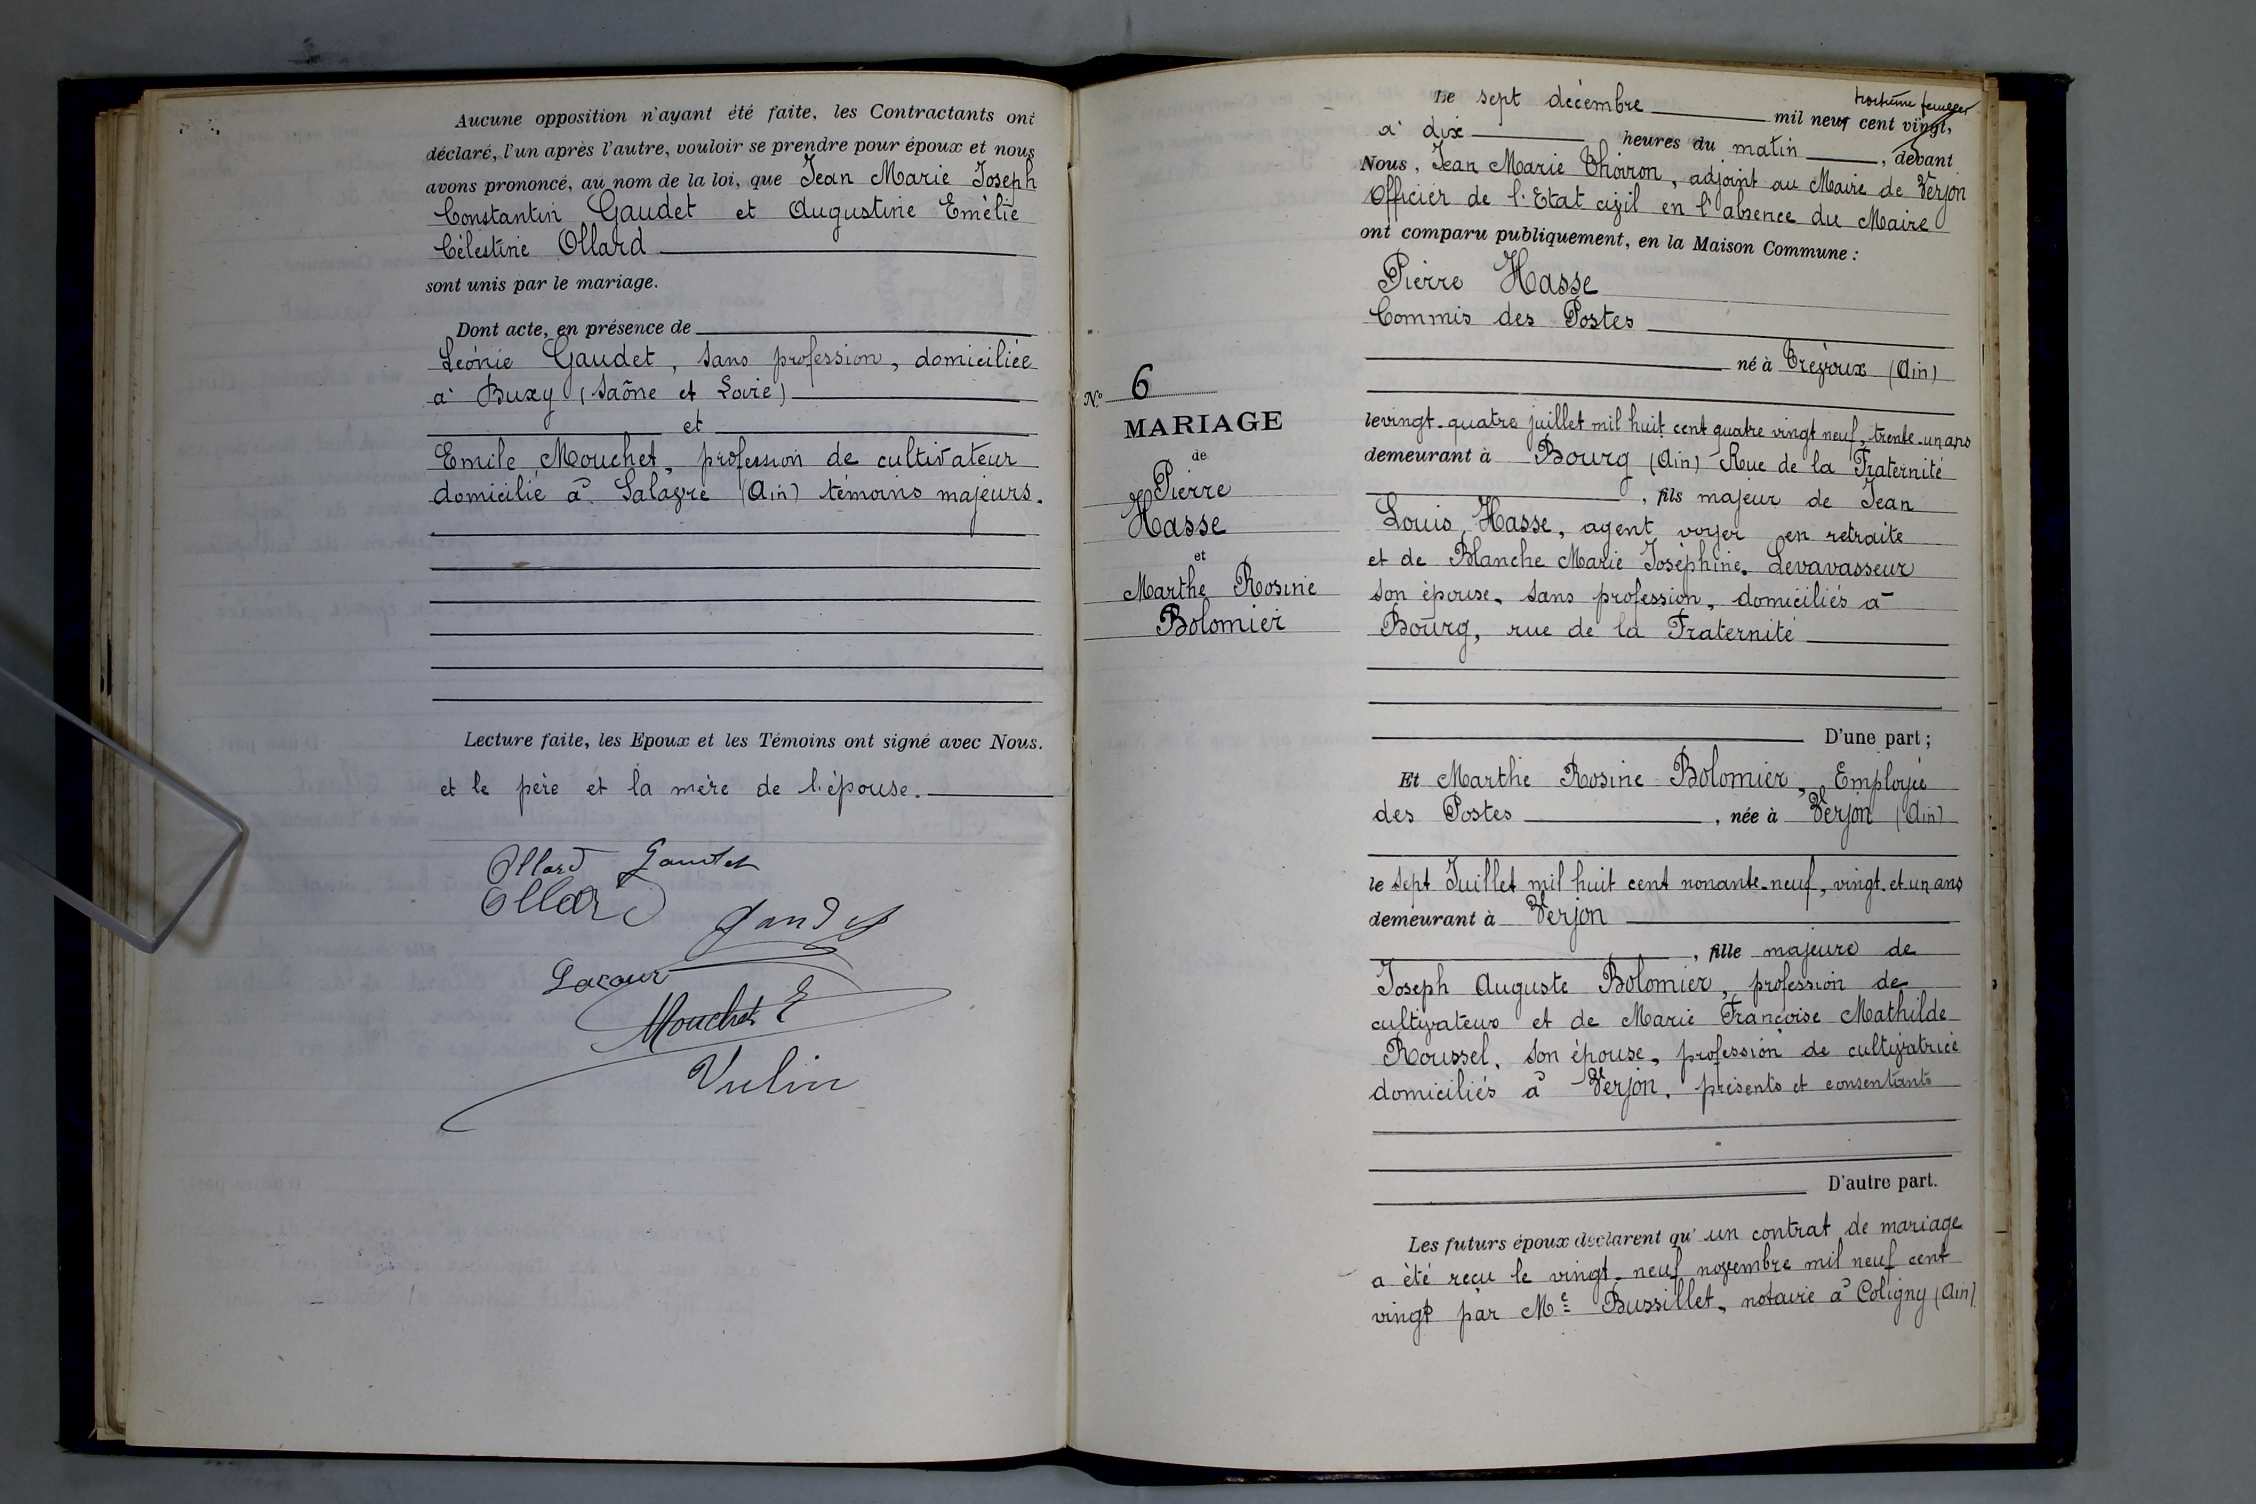 Aucune opposition n'ayant été faite, les Contractants ont
déclaré, l'un après l'autre, vouloir se prendre pour époux et nous
avons prononcé, au nom de la loi, que Jean Marie Joseph
Constantin Gaudet et Augustine Emèlie
Célestine Ollard
sont unis par le mariage.
Dont acte, en présence de
Léonie Gaudet, sans profession, domiciliée
à Buxy (Saône et Loire)
et
Emile Mouchet, profession de cultivateur
domicilié à Salavre (Ain) témoins majeurs.
Lecture faite, les Epoux et les Témoins ont signé avec Nous.
et le père et la mère de l'épouse.
Ollard Gaudet
Ollard
Gaudet
Lacour
Mouchet E
Vulin
N° 6
MARIAGE
de
Pierre
Hasse
et
Marthe Rosine
Bolomier
troisième feuillet
Le sept décembre mil neuf cent vingt,
à dix heures du matin, devant
Nous, Jean Marie Thoiron, adjoint au Maire de Verjon
Officier de l'Etat civil en l'absence du Maire
ont comparu publiquement, en la Maison Commune :
Pierre Hasse
Commis des Postes
né à Trévoux (Ain)
le vingt-quatre juillet mil huit cent quatre vingt neuf, trente-un ans
demeurant à Bourg (Ain) Rue de la Fraternité
, fils majeur de Jean
Louis Hasse, agent voyer en retraite
et de Blanche Marie Joséphine Levavasseur
son épouse, sans profession, domiciliés à
Bourg, rue de la Fraternité
D'une part ;
Et Marthe Rosine Bolomier, Employée
des Postes, née à Verjon (Ain)
le sept Juillet mil huit cent nonante-neuf, vingt-et-un ans
demeurant à Verjon
, fille majeure de
Joseph Auguste Bolomier, profession de
cultivateur et de Marie Françoise Mathilde
Roussel, son épouse, profession de cultivatrice
domiciliés à Verjon, présents et consentants
D'autre part.
Les futurs époux déclarent qu'un contrat de mariage
a été reçu le vingt-neuf novembre mil neuf cent
vingt par Me Bussillet, notaire à Coligny (Ain)